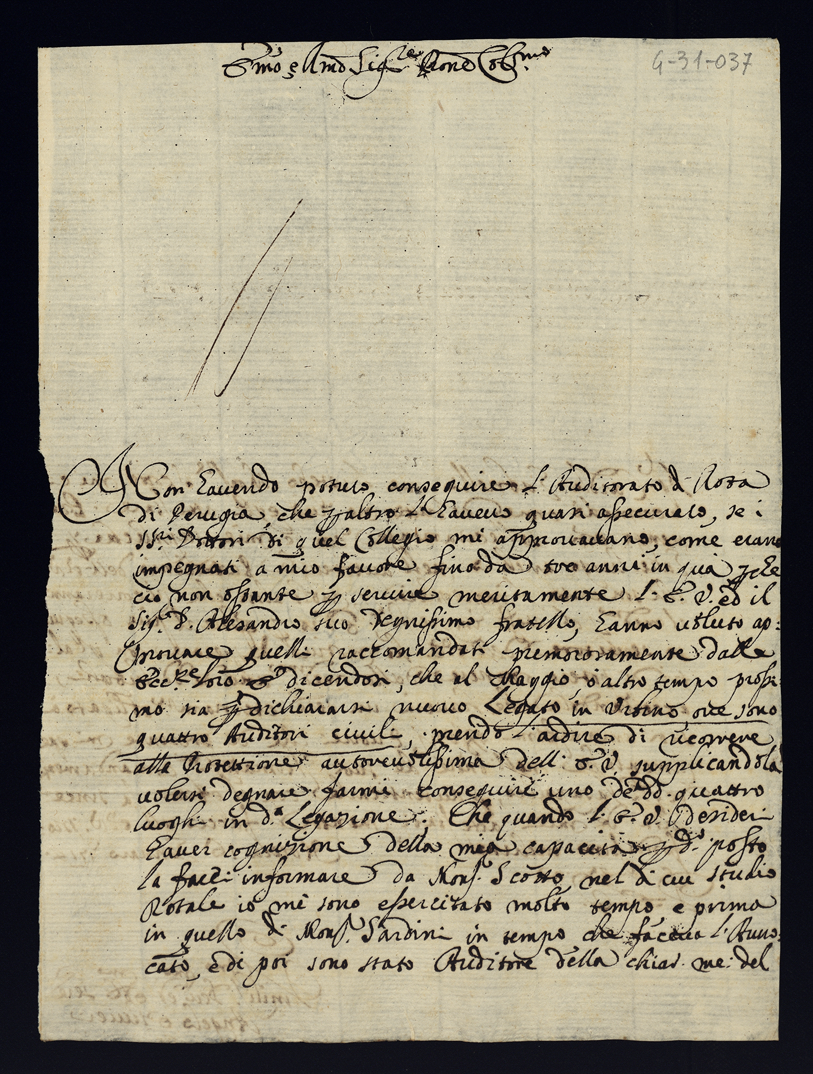 Emo e Rmo Sig.re Prone Col.mo
G-31-037
Non havendo potuto conseguire l'Auditorato di Rota
di Perugia, che p altro l'havevo quasi assecurato, se i
ss.ri Dottori di quel Collegio mi approvavano, come erano
impegnati a mio favore fino da tre anni in quà, p che
ciò non ostante p servire meritamente l'E.V. ed il
Sig.r D. Alesandro suo degnissimo fratello, hanno voluto ap:
provare quelli raccomandati premurosamente dalle
Ecc.ze loro dicendosi, che al Maggio, o altro tempo prossi:
mo sia p dichiararsi nuovo Legato in Urbino ove sono
quattro Auditori civili, prendo l'ardire di ricorrere
alla Protettione autorevolissima dell'E.V. supplicandola
volersi degnare farmi conseguire uno de dd. quattro
luoghi in d.a Legazione. Che quando l'E.V. desideri
haver cognizione della mia capacità p d.o posto
la facci informare da Mons.r Scotto, nel di cui studio
Rotale io mi sono essercitato molto tempo e prima
in quello di Mons.r Sardini in tempo che faceva l'Avvo:
cato, e di poi sono stato Auditore della chiar. me: del